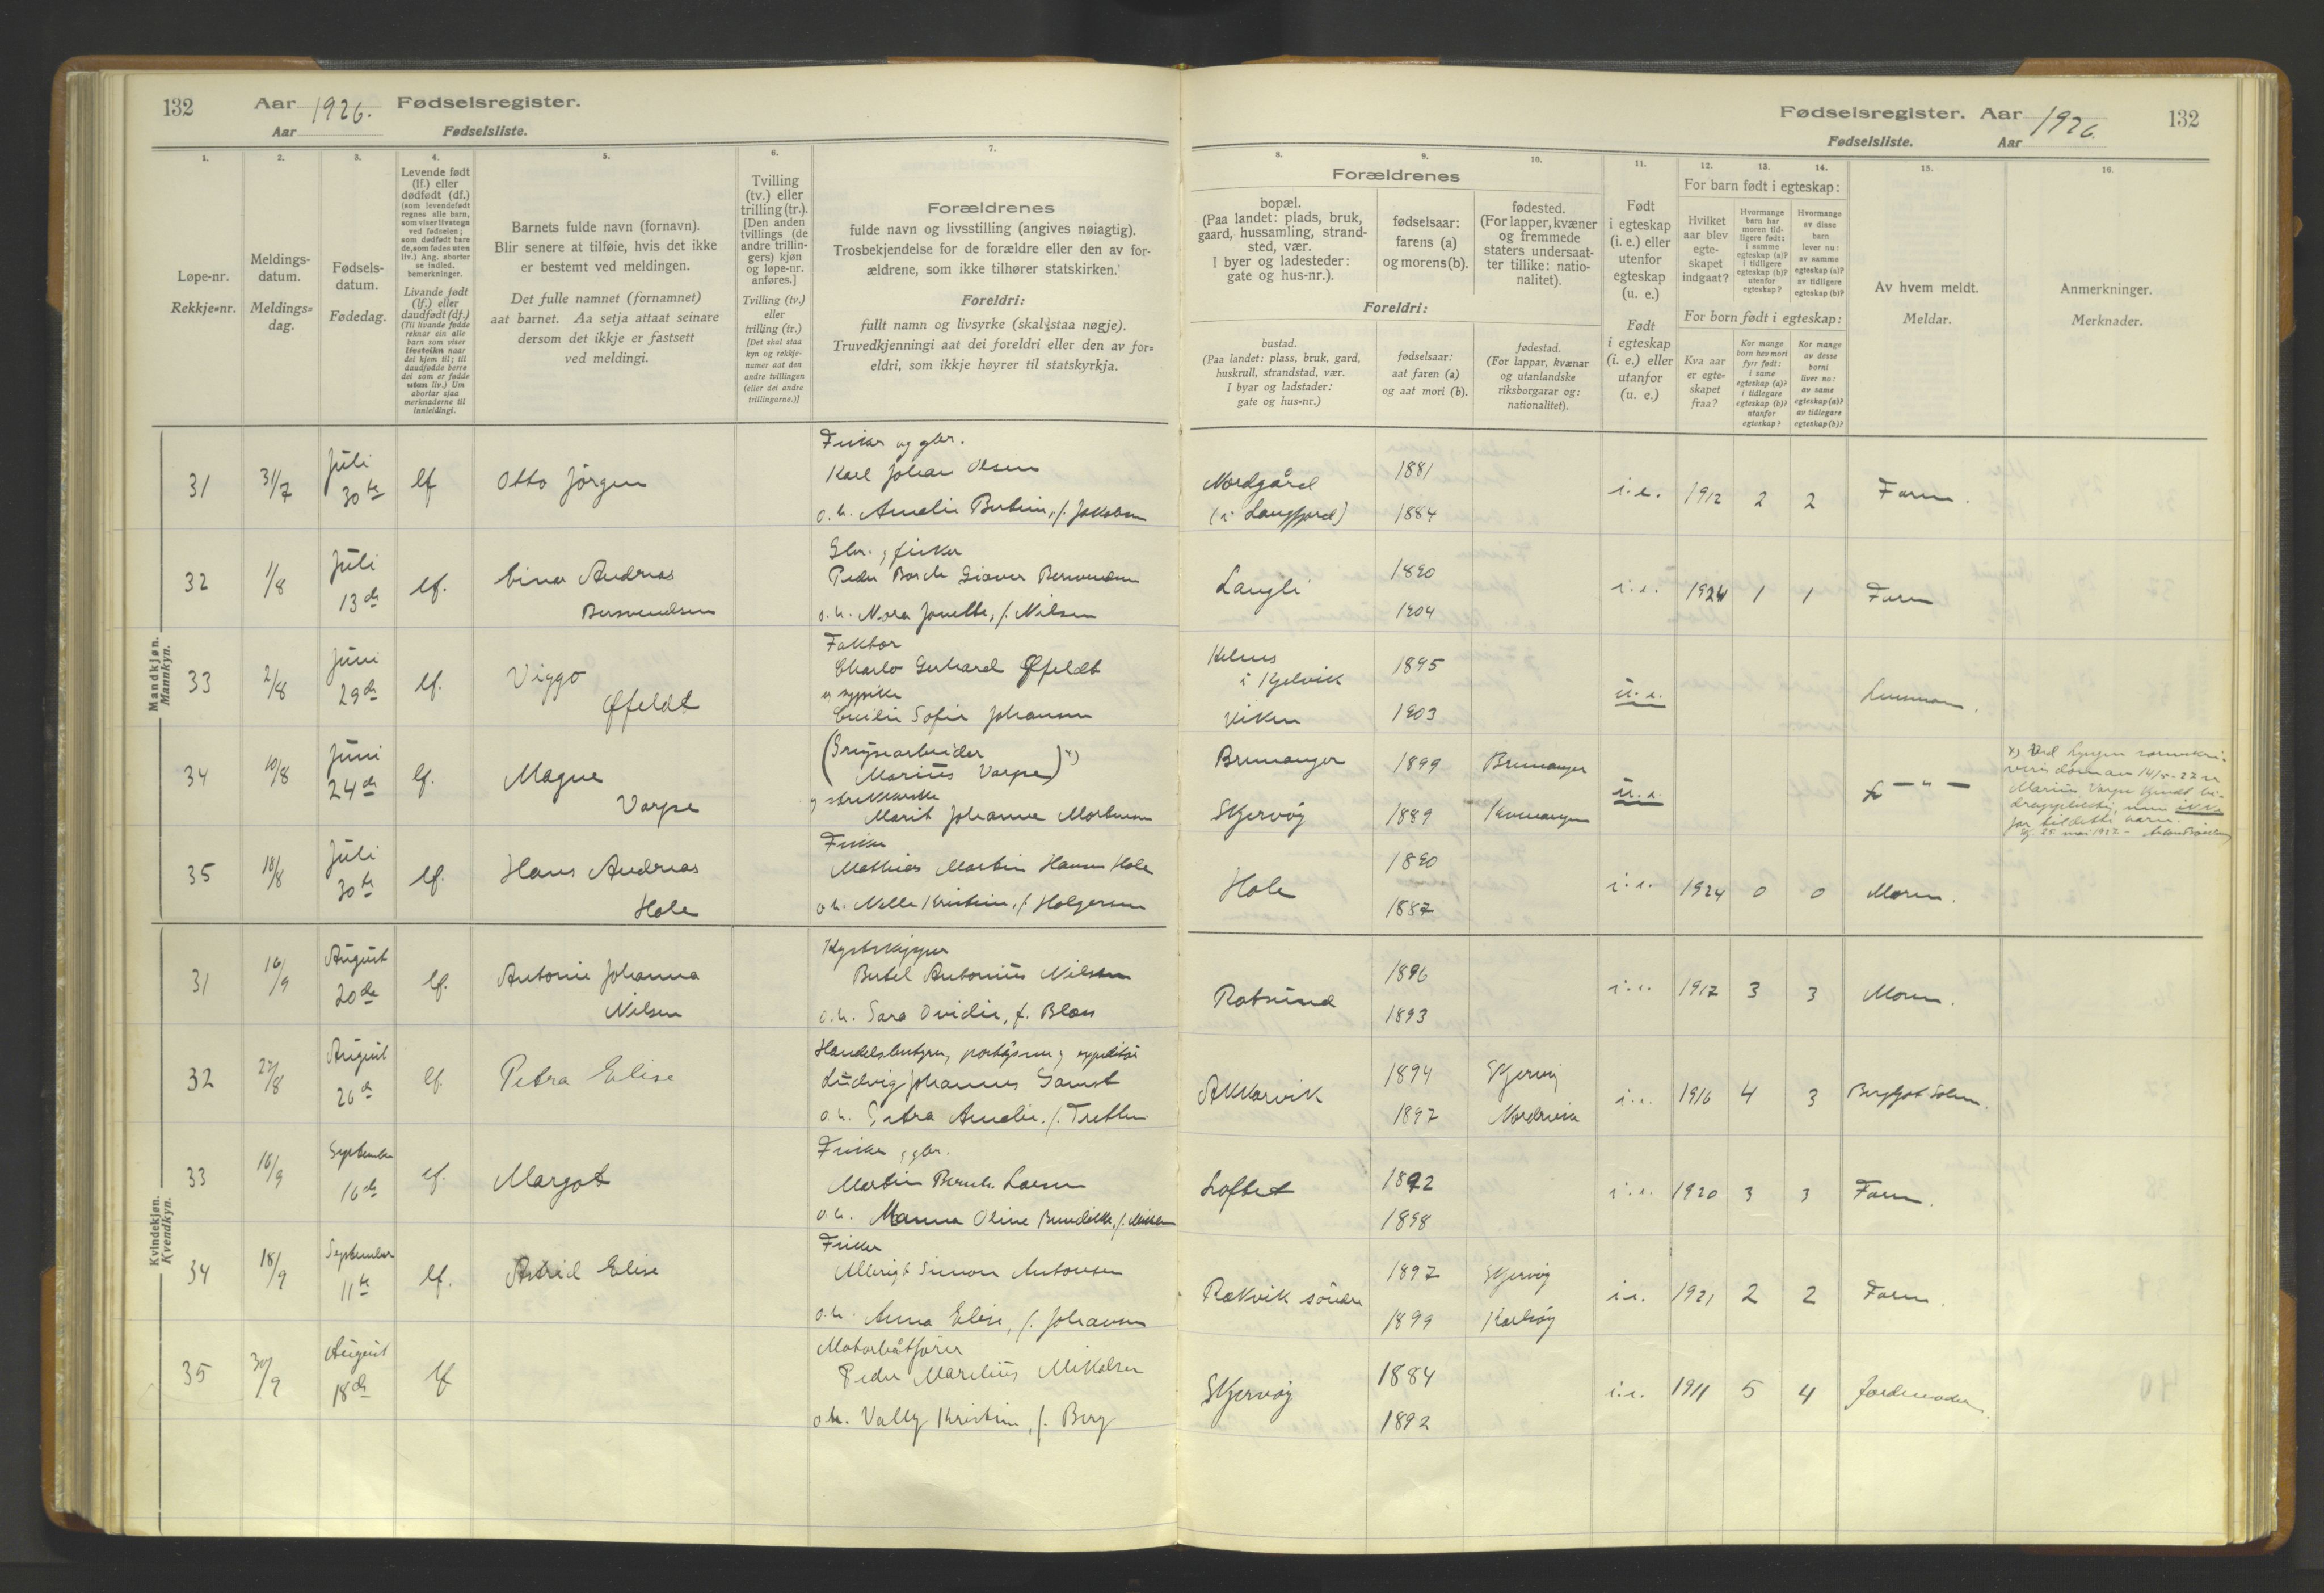 132 Aar 1926. Fødselsregister.
Aar Fødselsliste.
1.
Løpe-nr.
Rekkje=nr.
2.
Meldings-
datum.
Meldings=
dag.
3.
Fødsels-
datum.
Fødedag.
4.
Levende født
(lf.) eller
dødfødt (df.)
(som levendefødt
regnes alle barn,
som viser livstegn
ved fødselen;
som dødfødt bare
de, som fødes uten
liv.) Ang. aborter
se indled.
bemerkninger.
Livande født
(lf.) eller
daudfødt (df.)
(Til livande fødde
reknar ein alle
barn som viser
livsteikn naar
dei kjem til; til
daudfødde berre
dei som er fødde
utan liv.) Um
abortar sjaa
merknaderne til
innleidingi.
5.
Barnets fulde navn (fornavn).
Blir senere at tilføie, hvis det ikke
er bestemt ved meldingen.
Det fulle namnet (fornamnet)
aat barnet. Aa setja attaat seinare
dersom det ikkje er fastsett
ved meldingi.
6.
Tvilling
(tv.) eller
trilling (tr.).
[Den anden
tvillings (de
andre trillin-
gers) kjøn
og løpe-nr.
anføres.]
Tvilling (tv.)
eller
trilling (tr.)
[Det skal staa
kyn og rekkje-
numer aat den
andre tvillingen
(eller dei andre
trillingarne.)]
7.
Forældrenes
fulde navn og livsstilling (angives nøiagtig).
Trosbekjendelse for de forældre eller den av for-
ældrene, som ikke tilhører statskirken.
Foreldri:
fullt namn og livsyrke (skal staa nøgje).
Truvedkjenningi aat dei foreldri eller den av for=
eldri, som ikkje høyrer til statskyrkja.
Mandkjøn.
Mannkyn.
31 31/7 Juli 30te lf Otto Jörgen
Fisker og gbr.
Karl Johan Olsen
o. h. Amalie Bertine, f. Jakobsen
32 1/8 Juli 13de lf. Einar Andreas
Bersvendsen
Gbr., fisker
Peder Borch Giæver Bersvendsen
o. h. Nora Jonette, f. Nilsen
33 2/8 Juni 29de lf. Viggo
Øffeldt
Faktor
Charlo Gerhard Øffeldt
og sypike
Emilie Sofie Johansen
34 10/8 Juni 24de lf. Magne
Varpe
(Grusarbeider
Marius Varpe) x)
Marit Johanne Mortensen
35 18/8 Juli 30te lf. Hans Andreas
Hole
Fisker
Mathias Martin Hansen Hole
o. h. Nelle Kristine, f. Holgersen
Kvindekjøn.
Kvendkyn.
31 16/9 August 20de lf. Antonie Johanna
Nilsen
Kystskipper
Bertel Antonius Nilsen
o. h. Sara Ovidie, f. Blæs
32 27/8 August 26de lf. Petra Elise
Handelsbestyrer,
Ludvig Johannes Samst
o. h. Petra Amalie, f. Tretten
33 16/9 September 16de lf. Margot
Fisker, gbr.
Martin Larsen
o. h. Manna Oline Benedikte, f. Nilsen
34 18/9 September 11te lf. Astrid Elise
Fisker
Albrigt Simon Antonsen
o. h. Anna Elise, f. Johansen
35 30/9 August 18de lf
Motorbåtfører
Peder Marelius Mikalsen
o. h. Vally Kristine, f. Berg
Fødselsregister. Aar 1926. 132
Fødselsliste. Aar
8.
Forældrenes
bopæl.
(Paa landet: plads, bruk,
gaard, hussamling, strand-
sted, vær.
I byer og ladesteder:
gate og hus-nr.).
Foreldri:
bustad.
(Paa landet: plass, bruk, gard,
huskrull, strandstad, vær.
I byar og ladstader:
gate og hus=nr.)
9.
fødselsaar:
farens (a)
og morens (b).
fødselsaar:
aat faren (a)
og aat mori (b).
10.
fødested.
(For lapper, kvæner
og fremmede
staters undersaat-
ter tillike: natio-
nalitet).
fødestad.
(For lappar, kvænar
og utanlandske
riksborgarar og:
nationalitet).
11.
Født
i egteskap
(i. e.) eller
utenfor
egteskap
(u. e.)
Født
i egteskap
(i. e.) eller
utanfor
(u. e.)
12. 13. 14.
For barn født i egteskap:
Hvilket
aar blev
egte-
skapet
indgaat?
Hvormange
barn har
moren tid-
ligere født:
i samme
egteskap (a)?
i tidligere
egteskap (b)?
utenfor
egteskap?
Hvormange
av disse
barn
lever nu:
av samme
egteskap (a)?
av tidligere
egteskap (b)?
For born født i egteskap:
Kva aar
er egte=
skapet
fraa?
Kor mange
born hev mori
fyrr født:
i same
egteskap (a)?
i tidlegare
egteskap (b)?
utanfor
egteskap?
Kor mange
av desse
borni
liver no:
av same
egteskap (a)?
av tidlegare
egteskap (b)?
15.
Av hvem meldt.
Meldar.
16.
Anmerkninger.
Merknader.
Nordgård
(i Langfjord) 1881 1884 i. e. 1912 2 2 Faren.
Langli 1890 1904 i. e. 1924 1 1 Faren
Helnes
i Kjelvik 1895
Viken 1903 u. e. Lensmann.
Bremanger 1899 Bremanger
Skjervøy 1889 Kvænangen u. e. — " —
x) Ved Lyngen sorenskri-
vers dom av 14/5-27 er
Marius Varpe kjendt bi-
dragspliktig, men ikke
far til dette barn.
Hole 1890 1887 i. e. 1924 0 0 Moren.
Rotsund 1896 1893 i. e. 1917 3 3 Moren.
Akkarvik 1894 Skjervøy
1897 Nordreisa i. e. 1916 4 3 Bergljot Solem.
Loftet 1892 1898 i. e. 1920 3 3 Faren.
Rakvik søndre 1897 Skjervøy
1899 Karlsøy i. e. 1921 2 2 Faren.
Skjervøy 1884 1892 i. e. 1911 5 4 Jordmoder.